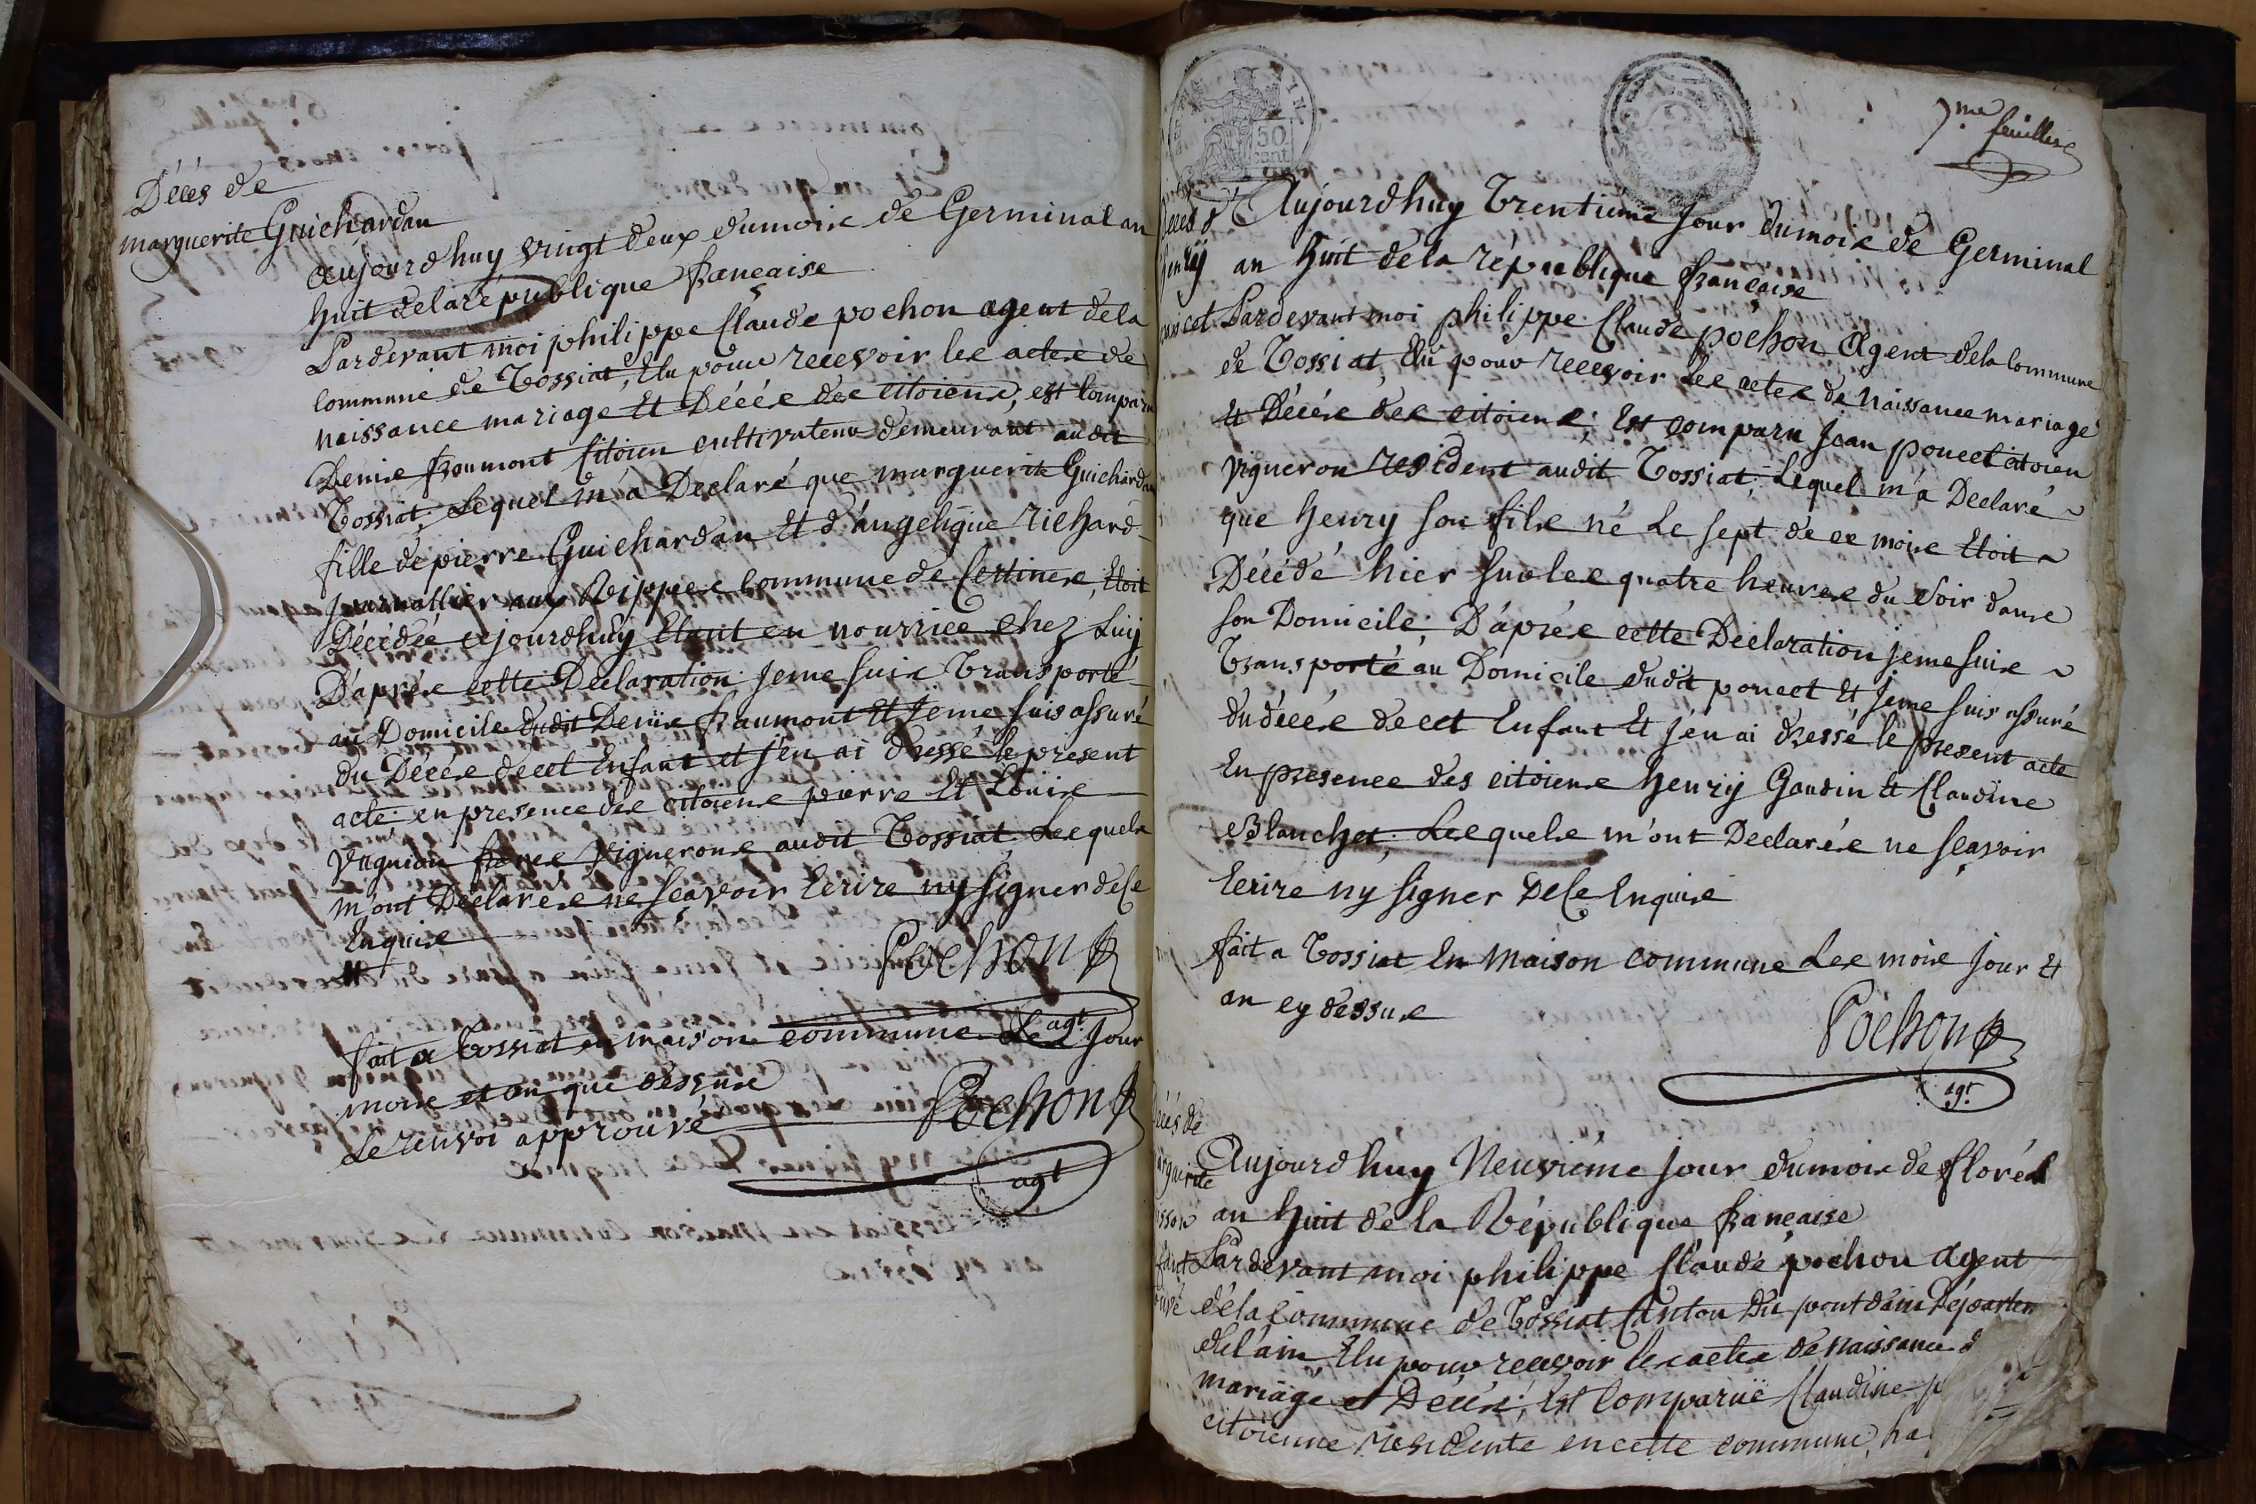 Décès de
marguerite Guichardan
aujourdhuy vingt deux dumois de Germinal an
huit delarépublique française
Pardevant moi philippe Claude pochon agent dela
commune de Tossiat, Elu pour recevoir les actes de
naissance mariage Et Décés des citoiens, est comparu
Denis fromont Citoien cultivateur demeurant audit
Tossiat, Lequel m'a Declaré que marguerite Guichardan
fille de pierre Guichardan Et d'angelique richard
journallier aux Rippes commune de Certines, Etoit
Décédée cejourdhuy Etant en nourrice chez Luy
D'après cette Declaration jeme suis Transporté
au Domicile dudit Denis fraumont Et Jeme suis assuré
du Décés decet Enfant et j'en ai dressé le present
acte en presence des citoiens pierre Et Louis
Vugnion freres Vignerons audit Tossiat Lesquels
m'ont Déclarés ne sçavoir Ecrire ny signer dece
Enquis
Pochon
agt
fait a Tossiat en maison commune Les Jour
mois et an que dessus
Le renvoi approuvé
Pochon
agt
7me feuillet
50
cent
Décés d
henry
poncet
Aujourdhuy Trentième Jour dumois de Germinal
an huit dela république française
Pardevant moi philippe Claude pochon Agent dela commune
de Tossiat, Elu pour recevoir Les actes de Naissance mariage
Et Décés des citoiens; Est comparu Jean poncet citoien
vigneron resident audit Tossiat, Lequel m'a Declaré
que henry son fils né Le sept de ce mois Etoit
Décédé hier sur les quatre heures du soir dans
son Domicile; D'après cette Declaration jeme suis
Transporté au Domicile dudit poncet Et Jeme suis assuré
du décés decet Enfant Et j'en ai dressé le present acte
En presence des citoiens henry Gaudin Et Claudine
Blanchet, Lesquels m'ont Declarés ne sçavoir
Ecrire ny signer Dece Enquis
fait a Tossiat En maison commune Les mois jour Et
an cy dessus
Pochon
agt
Décés de
marguerite
Aujourdhuy Neuvième jour dumois de floréal
an huit de la République française
Pardevant moi philippe Claude pochon agent
déla commune de Tossiat Canton du pont dain Départem
del'ain, Elu pour recevoir les actes de naissance d
mariage et Décés, Est Comparuë Claudine
citoienne residente en cette commune,